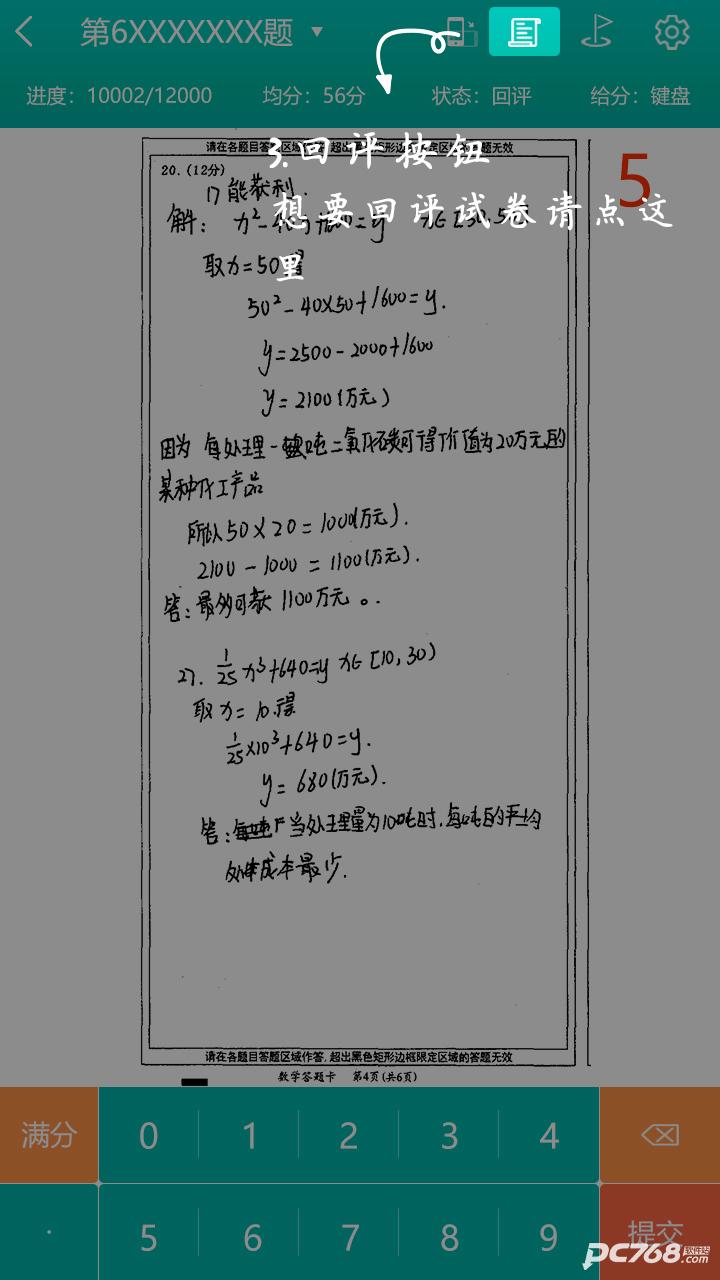 第6XXXXXXX题
进度：10002/12000 均分：56分 状态：回评 给分：键盘
3.回评按钮
想要回评试卷请点这
里
5
请在各题目答题区域作答，超出黑色矩形边框限定区域的答题无效
20．（12分）
1) 能获利．
解：
取x=50得
50²-40×50+1600=y.
y=2500-2000+1600
y=2100(万元)
因为 每处理一吨二氧化碳可得价值为20万元的
某种化工产品
所以50×20=1000(万元).
2100-1000=1100(万元).
答：最多可获1100万元。.
2). 1/25 x³+640=y x∈[10,30)
取x=10.得
1/25×10³+640=y.
y=680(万元).
答：当处理量为10吨时，每吨的平均
处理成本最少.
请在各题目答题区域作答，超出黑色矩形边框限定区域的答题无效
数学答题卡 第4页(共6页)
满分 0 1 2 3 4
. 5 6 7 8 9 提交
PC768.com 软件站